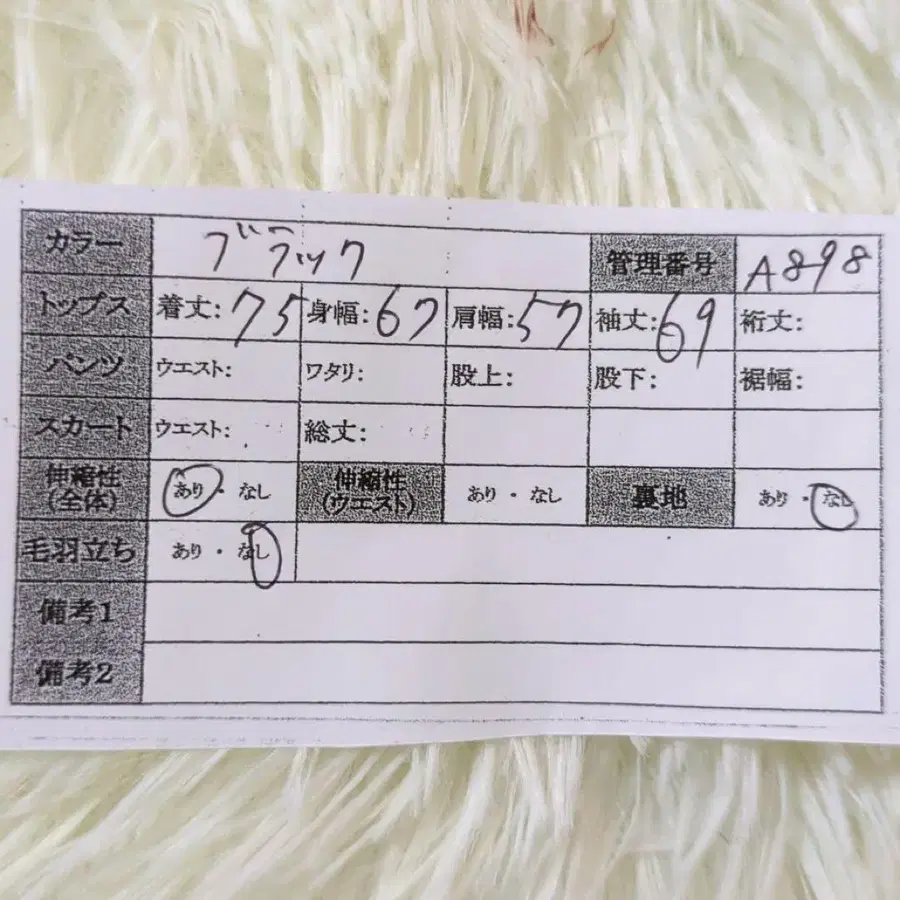 カラー ブラック 管理番号 A898
トップス 着丈:75 身幅:67 肩幅:57 袖丈:69 裄丈:
パンツ ウエスト: ワタリ: 股上: 股下: 裾幅:
スカート ウエスト: 総丈:
伸縮性(全体) あり・なし 伸縮性(ウエスト) あり・なし 裏地 あり・なし
毛羽立ち あり・なし
備考1
備考2